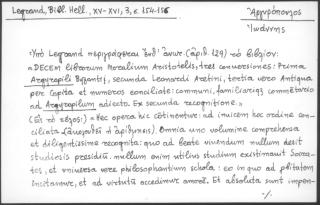 Legrand, Bibl. Hell., XV-XVI, 3, σ. 154-156
Ἀργυρόπουλος
Ἰωάννης
Ὑπὸ Legrand περιγράφεται (ἀρ. 129) τὸ βιβλίον:
«DECEM librorum Moralium Aristotelis, tres conversiones: Prima
Argyropyli Byzantij, secunda Leonardi Aretini, tertia vero Antiqua
per Capita et numeros conciliate: communi, familiariq; commētario
ad Argyropilum adiecto. Ex secunda recognitione.»
(Εἰς τὸ τέλος:) «Hec opera hic cōtinentur: ad inuicem hoc ordine con-
ciliata Omnia uno volumine comprehensa
et diligentissime recognita: quo ad beate vivendum nullum desit
studiosis presidiū. nullum enim utilius studium existimauit Socra-
tes, et vniuersa vere philosophantium schola: eo in quo ad pietatem
incitamur, et ad virtutū accedimur amorē. Et absoluta sunt impen-
./.